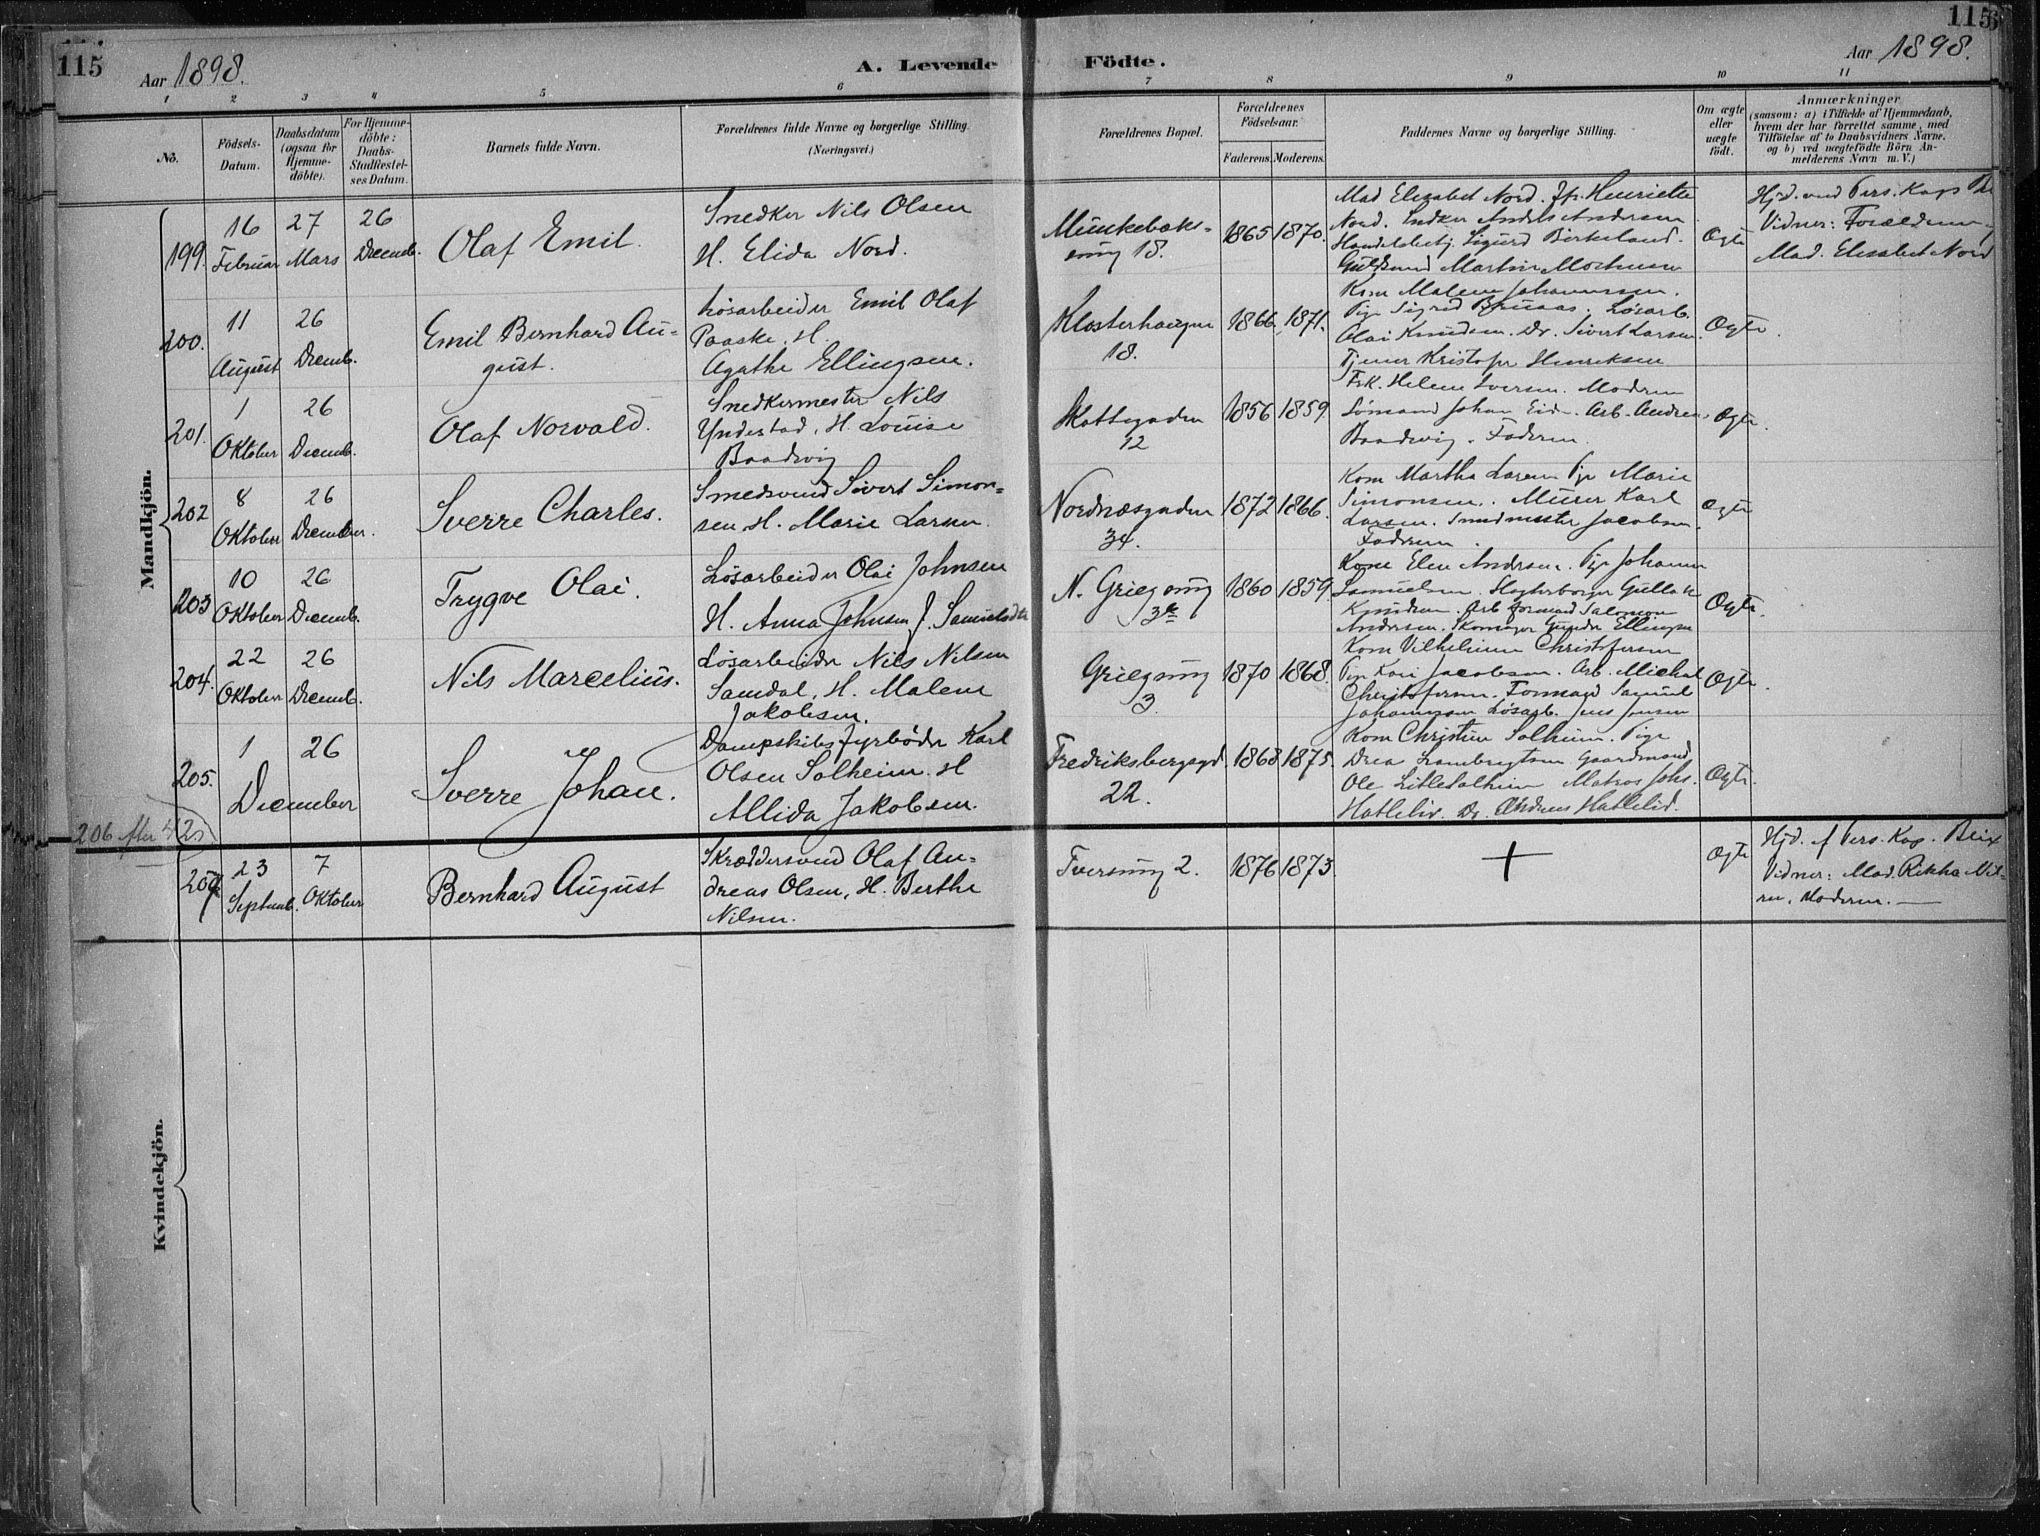 115
Aar 1898.
A. Levende Födte.
Aar 1898.
115
1 2 3 4 5 6 7 8 9 10 11
No.
Födsels-
Datum.
Daabsdatum
(ogsaa för
Hjemme-
döbte).
For Hjemme-
döbte:
Daabs-
Stadfæstel-
ses Datum.
Barnets fulde Navn.
Forældrenes fulde Navne og borgerlige Stilling.
(Næringsvei.)
Forældrenes Bopæl.
Forældrenes
Födselsaar.
Faderens. Moderens.
Faddernes Navne og borgerlige Stilling.
Om ægte
eller
uægte
födt.
Anmærkninger
(saasom: a) i Tilfælde af Hjemmedaab,
hvem der har forrettet samme, med
Tilföielse af to Daabsvidners Navne,
og b) ved uægtefödte Börn An-
melderens Navn m. V.)
Mandkjön.
199.
16
Februar
27
Mars
26
Decemb.
Olaf Emil.
Snedker Nils Olsen
H. Elida Nord.
Munkebæks-
smug 18.
1865
1870.
Mad Elisabet Nord. Henriette
Nord. Anders Andersen
Handelsbetj. Sigurd Birkeland.
Martin
Ægte
Hjd. ved Pers. Kap.
Vidner: Forældrene,
Mad. Elisabet Nord
200.
11
August
26
Decemb.
Emil Bernhard Au-
gust.
Løsarbeider Emil Olaf
Paaske. H.
Agathe Ellingsen.
Klosterhaugen
18.
1866
1871.
Kone Malene Johannessen.
Pige Sigrid Løsarb.
Olai Knudsen. Do. Sivert Larsen.
Tjener Kristofer Henriksen
Ægte
201.
1
Oktober
26
Decemb.
Olaf Norvald.
Snedkermester Nils
Yndestad, H. Louise
Baadsvig
Skottegaden
12
1856
1859.
Frk. Helene Iversen. Moderen
Sömand Johan Eide. Arb. Andreas
Baadsvig. Faderen.
Ægte.
202
8
Oktober
26
December.
Sverre Charles.
Smedsvend Sivert Simon-
sen, H. Marie Larsen.
Nordnæsgaden
34.
1872
1866.
Kone Martha Larsen Pige Marie
Simonsen. Murer Karl
Larsen. Smedmester Jacobsen.
Faderen.
Ægte
203
10
Oktober
26
Decemb.
Trygve Olai.
Løsarbeider Olai Johnsen
H. Anna Johnsen f. Samuelsdtr
N. Griegsmug
3
1860
1859.
Kone Elen Andersen. Pige Johanne
Samuelsen. Slagterborger Gullak
Knudsen. Arb. formand Salomon
Andersen. Skomager Ellingsen
Ægte.
204.
22
Oktober
26
Decemb.
Nils Marcelius.
Løsarbeider Nils Nilsen
Samdal, H. Malene
Jakobsen.
Griegsmug
3.
1870
1868.
Kone Vilhelmine Christofersen
Pige Kari Jacobsen. Arb. Michal
Christofersen. Formand Samuel
Johannesen Løsarb. Jens Jensen
Ægte.
205.
1
December
26
Sverre Johan.
Dampskibsfyrbøder Karl
Olsen Solheim. H
Allida Jakobsen.
Fredriksbergsgd.
22.
1868
1875.
Kone Christine Solheim. Pige
Drea Gaardmand
Ole Matros Johs.
Hatleliv. Do. Andreas Hatlelid.
Ægte.
206 efter 42
207
23
Septemb.
7
Oktober
Bernhard August
Skræddersvend Olaf An-
dreas Olsen, H. Berthe
Nilsen.
Tversmug 2.
1876
1873.
+
Ægte
Hjd. af Pers. Kap. Brix
Vidner: Mad. Rikka Nil-
sen, Moderen. —
Kvindekjön.